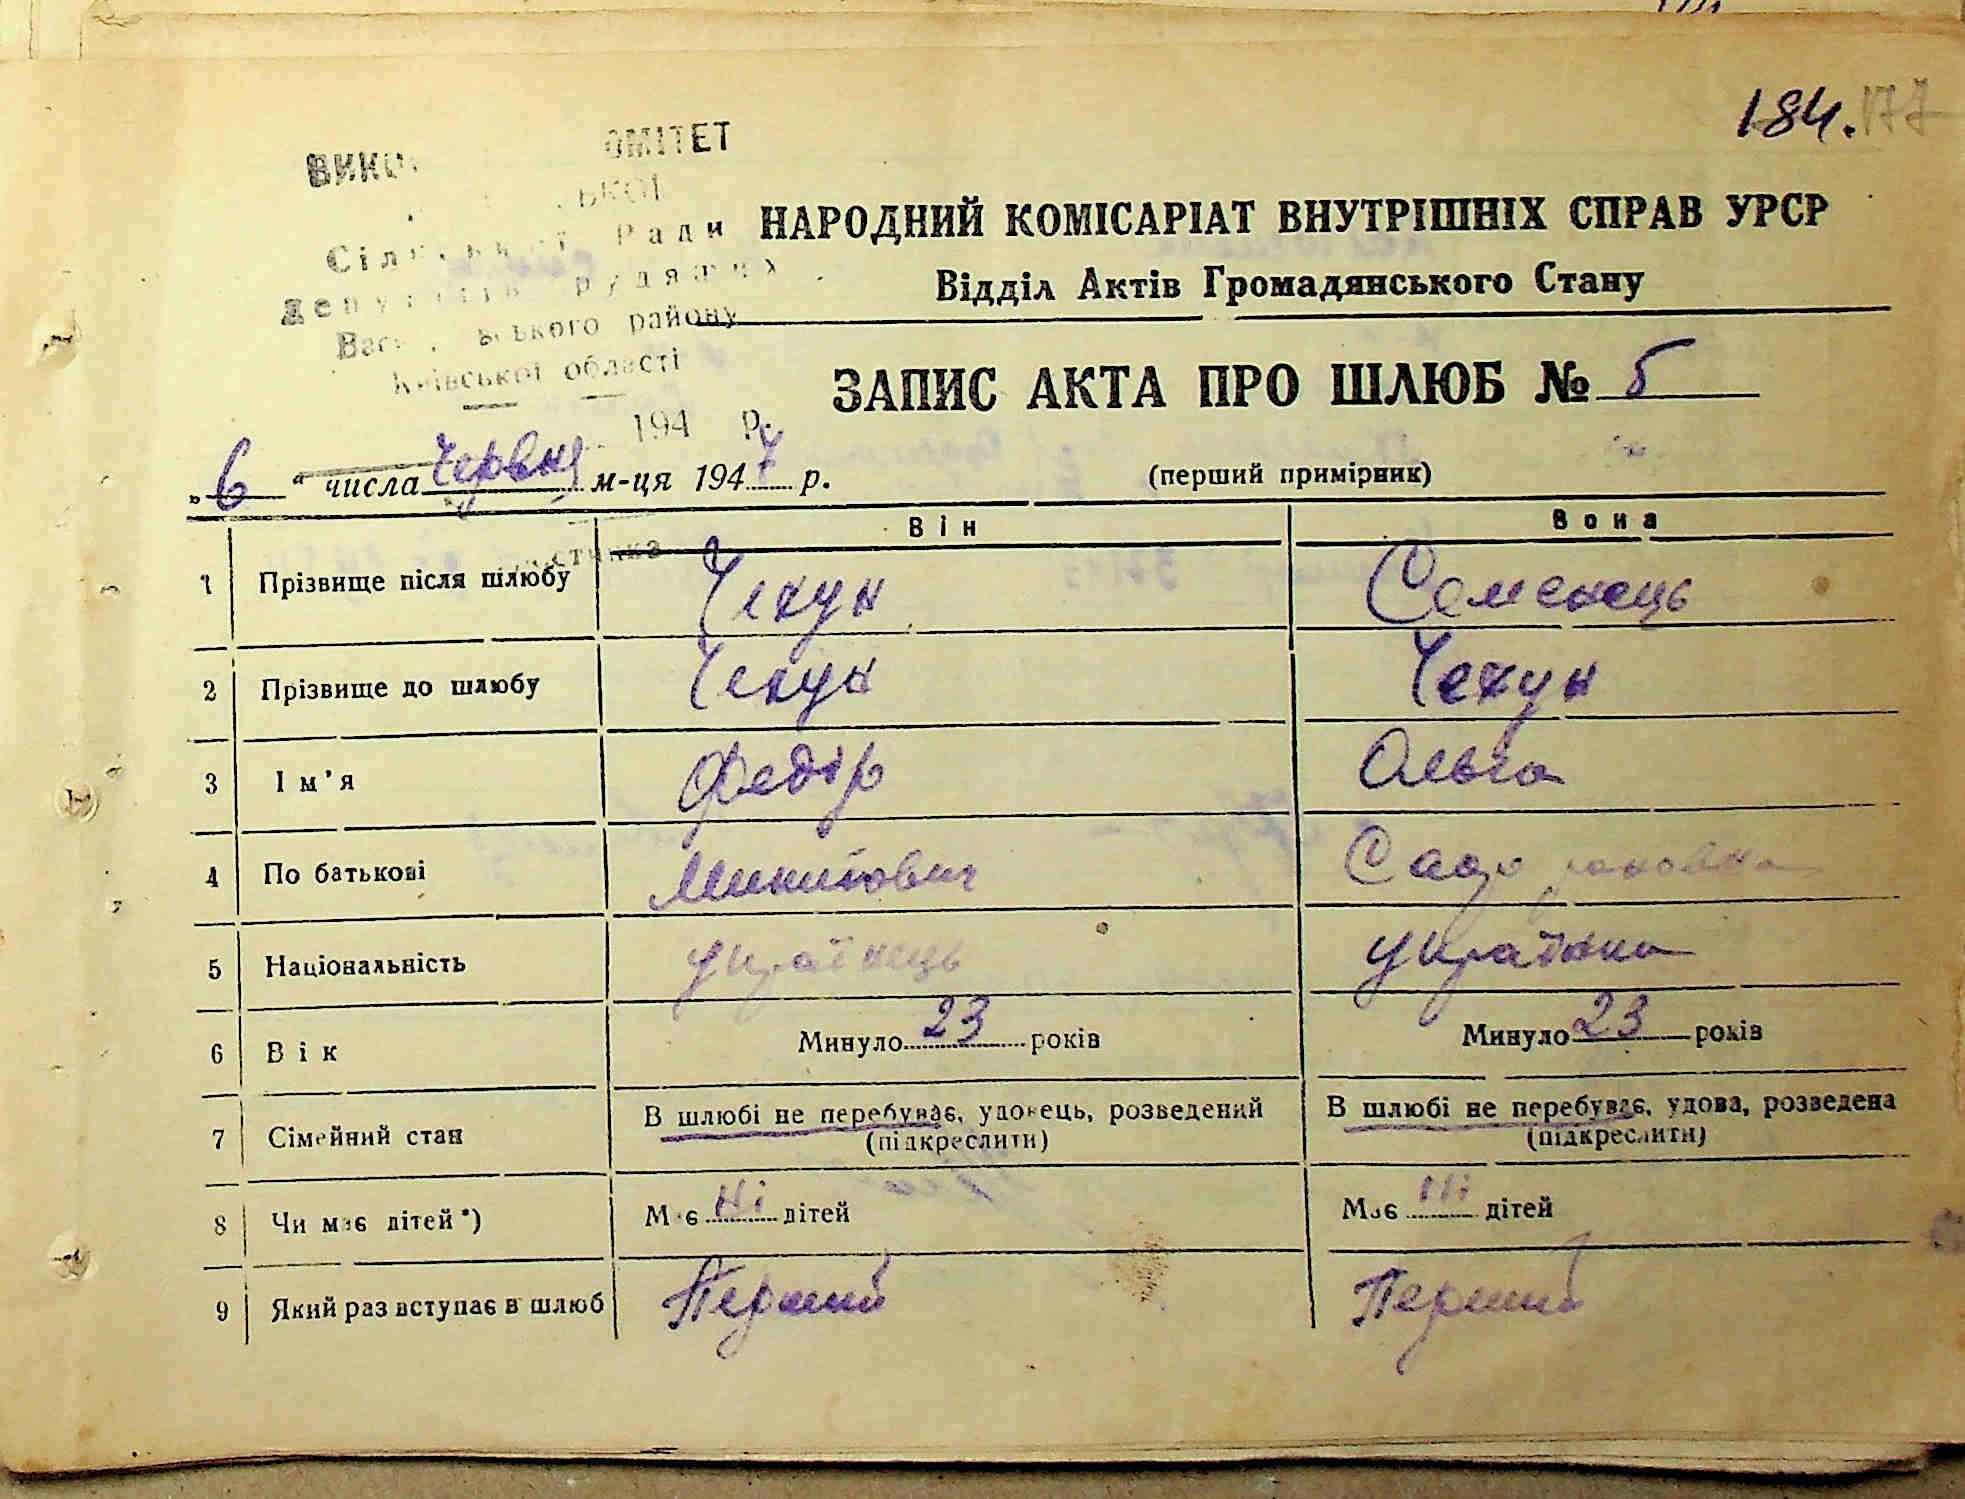 184. 177
ОМІТЕТ
Ради
району
Київської області
194 р.
НАРОДНИЙ КОМІСАРІАТ ВНУТРІШНІХ СПРАВ УРСР
Відділ Актів Громадянського Стану
ЗАПИС АКТА ПРО ШЛЮБ № 5
„6" числа червня м-ця 1947 р. (перший примірник)
Він Вона
1 Прізвище після шлюбу Чекун Семенець
2 Прізвище до шлюбу Чекун Чекун
3 Ім'я Федір Ольга
4 По батькові Микитович
5 Національність українець українка
6 Вік Минуло 23 років Минуло 23 років
7 Сімейний стан В шлюбі не перебуває, удовець, розведений (підкреслити) В шлюбі не перебуває, удова, розведена (підкреслити)
8 Чи має дітей *) Має ні дітей Має ні дітей
9 Який раз вступає в шлюб Перший Перший